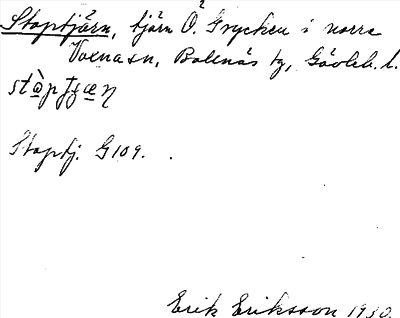 Staptjärn, tjärn Ö. Grycken i norra
Voxna sn, Bollnäs tg, Gävleb. l.
Staptj. G109.
Erik Eriksson 1930.